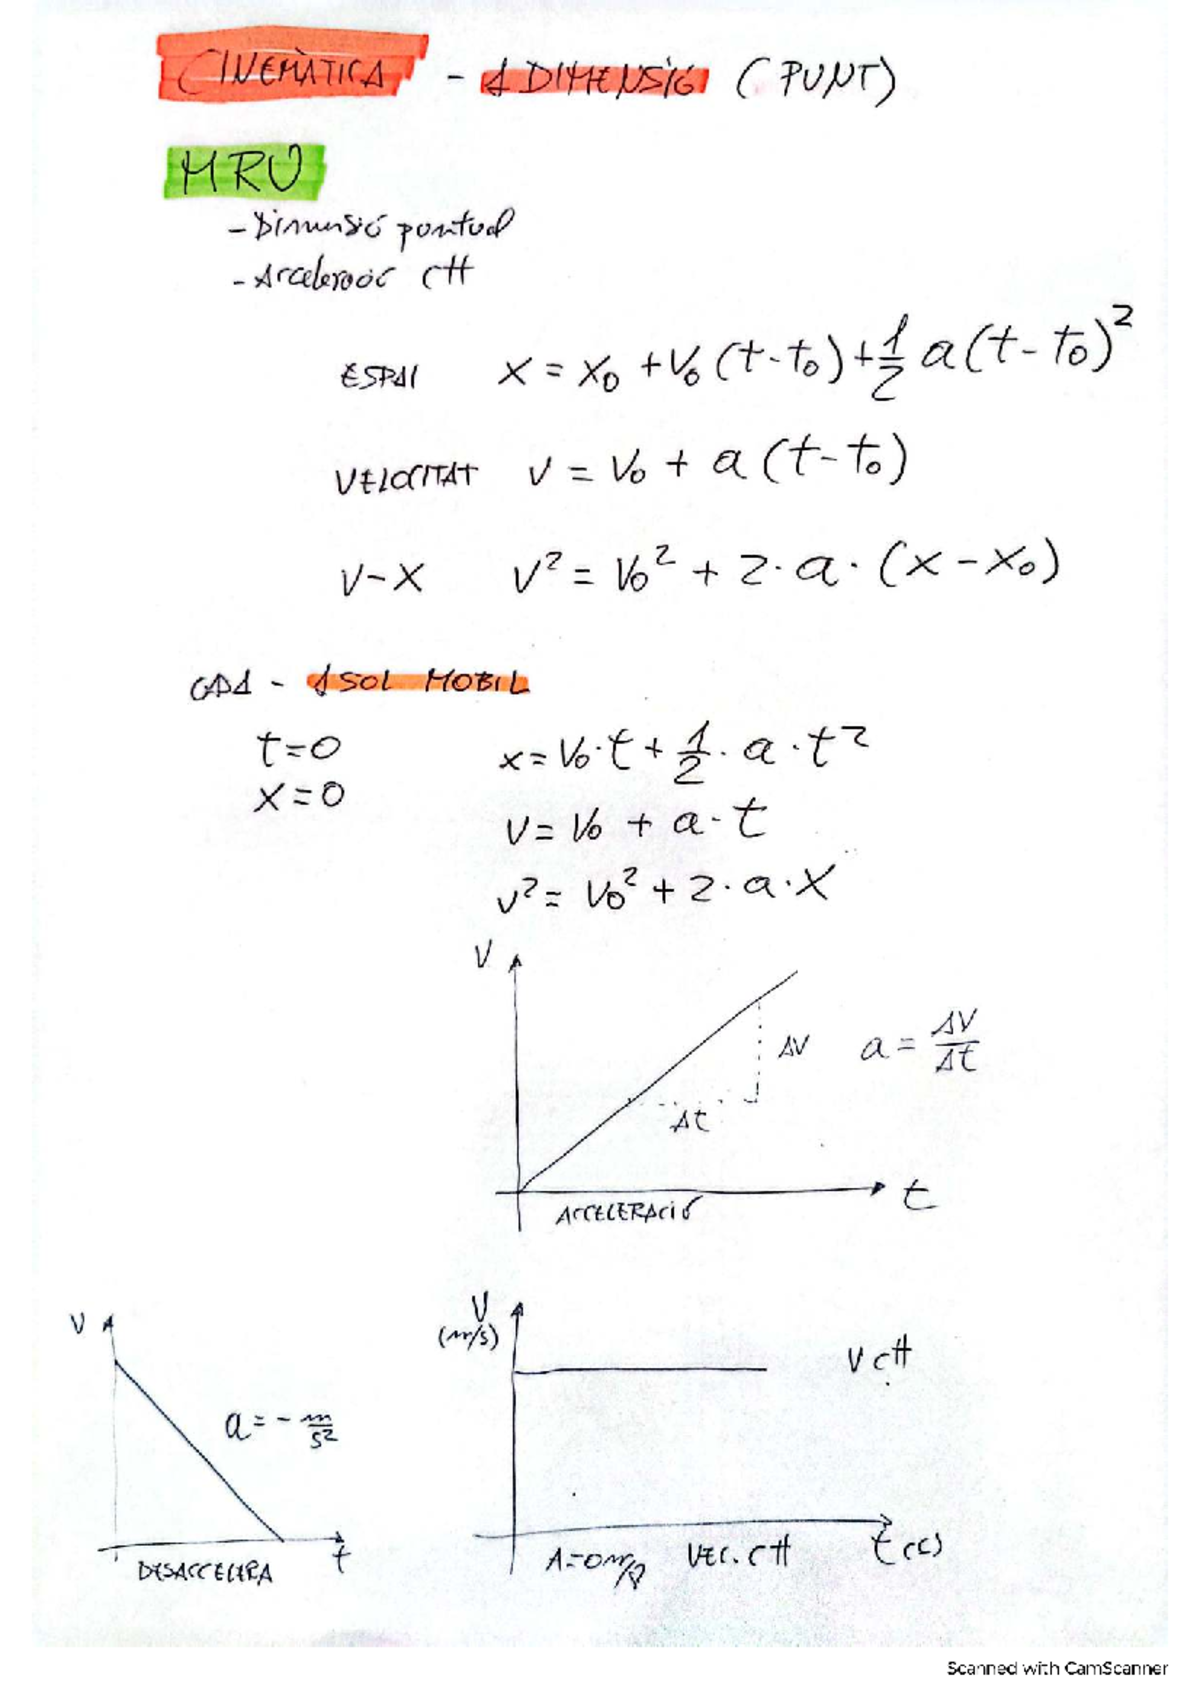 CINEMÀTICA - 1 DIMENSIÓ (PUNT)
MRU
- Dimensió puntual
- Acceleració ctt
ESPAI x = x₀ + v₀ (t - t₀) + 1/2 a (t - t₀)²
VELOCITAT v = v₀ + a (t - t₀)
V-X v² = v₀² + 2 · a · (x - x₀)
CAS 1 - 1 SOL MOBIL
t=0 x = v₀ · t + 1/2 · a · t²
x=0
v = v₀ + a · t
v² = v₀² + 2 · a · x
V
ΔV a = ΔV/Δt
Δt
t
ACCELERACIÓ
V
a = - m/s²
t
DESACCELERA
V
(m/s)
V ctt
VEL. CTT t
Scanned with CamScanner